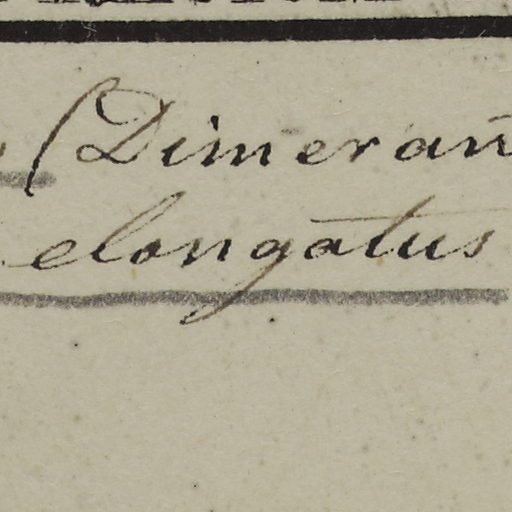 (Dimeran
elongatus